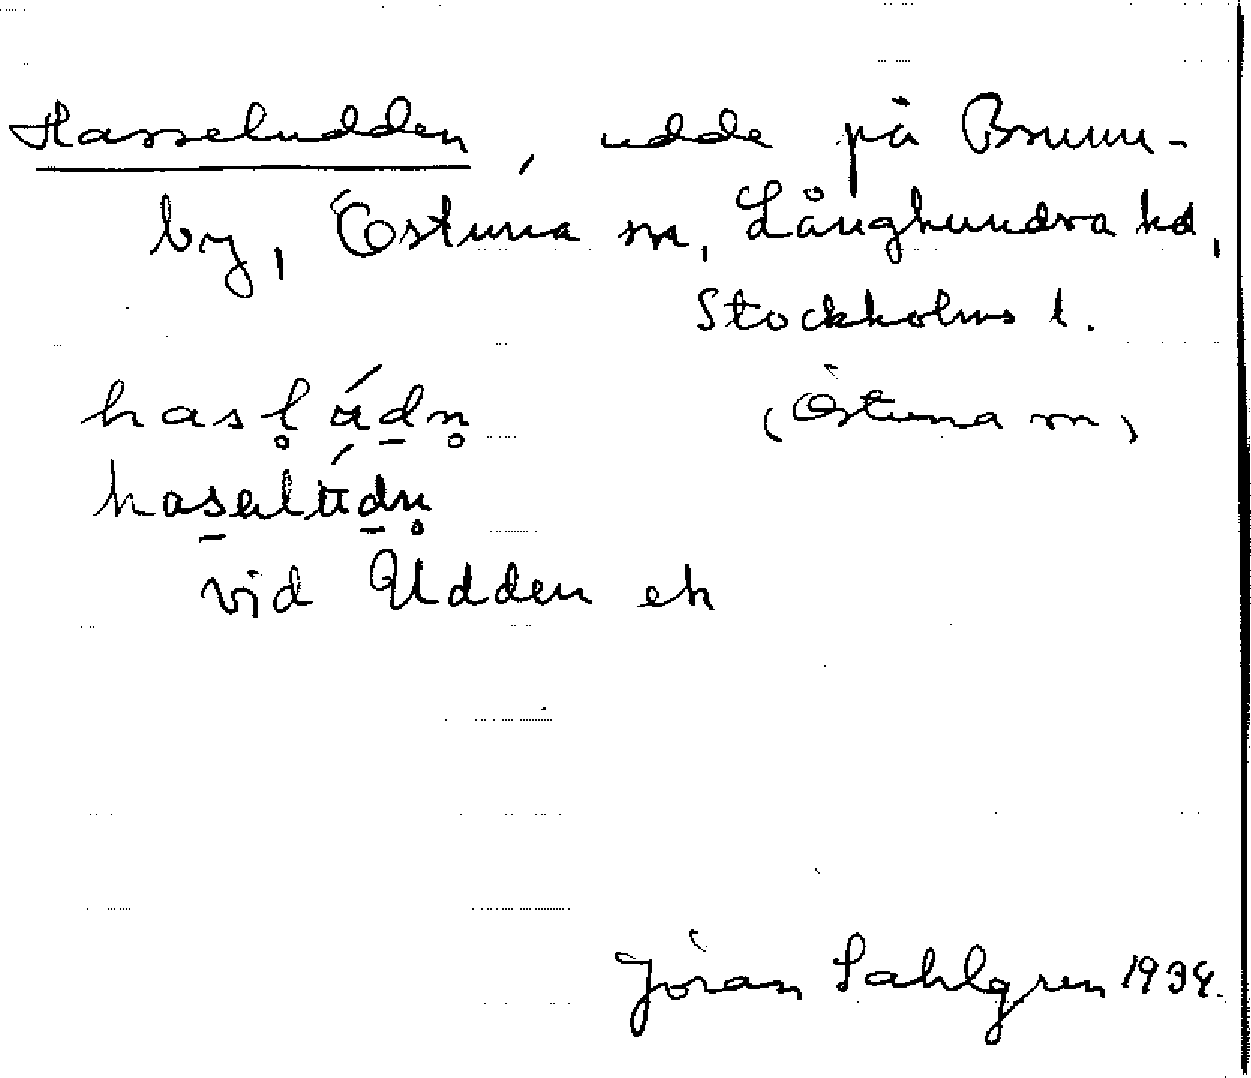 Hasseludden, udde på Brunn-
by, Östuna sn, Långhundra hd,
Stockholms l.
hasl̥ údn̥ (Östuna sn)
hasalúdn̥
vid Udden ek
Jöran Sahlgren 1934.